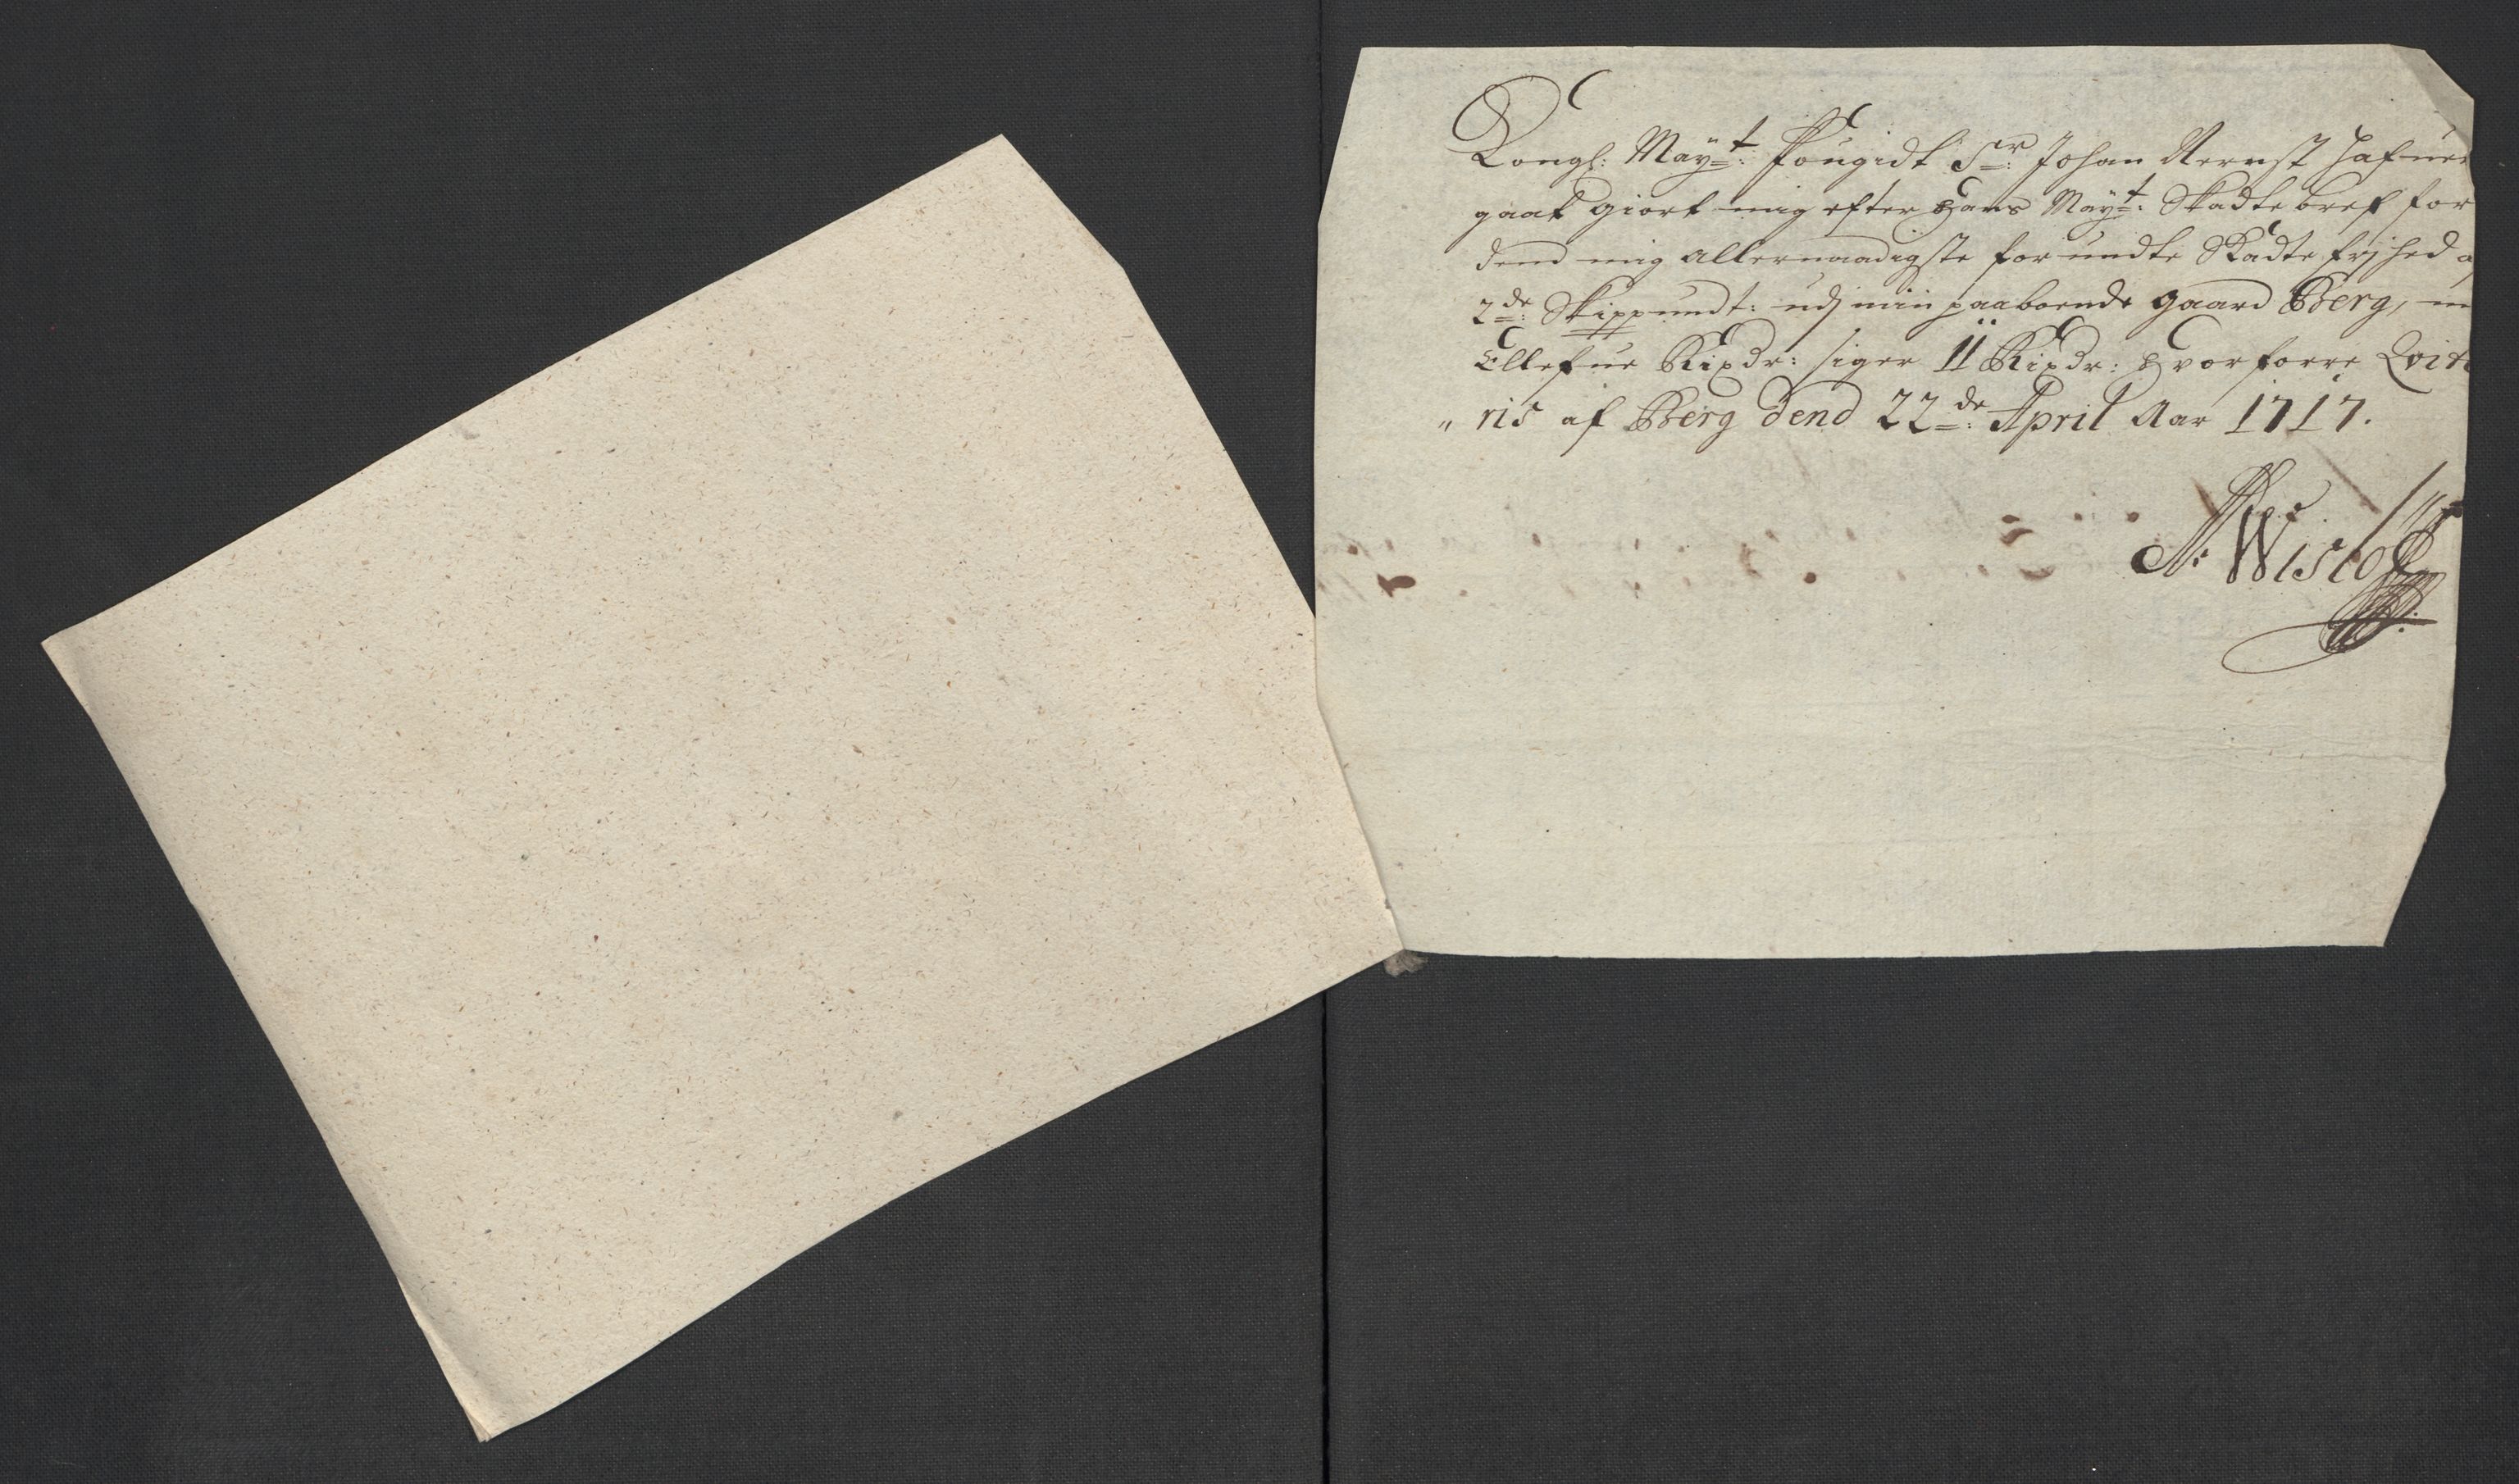 Kongl: May:t: Fougidt Sr: Johan Aernst Hafuer
gaat giort mig efter Hans May:t: Skadte bref for
dend mig allernaadigste forundte Skadte frihed a
2de: Skippundt: udj min paaboende gaard Berg, m
Ellefue Rixdr: siger 11 Rixdr: Hvorforre Qvit
" ris af Berg dend 22de: April Aar 1717.